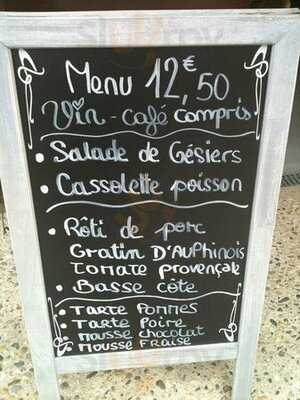 Menu 12€,50
Vin - café compris
• Salade de Gésiers
• Cassolette poisson
• Rôti de porc
Gratin D'AUPhinois
Tomate provençale
• Basse côte
• Tarte Pommes
• Tarte Poire
• Mousse chocolat
• Mousse Fraise